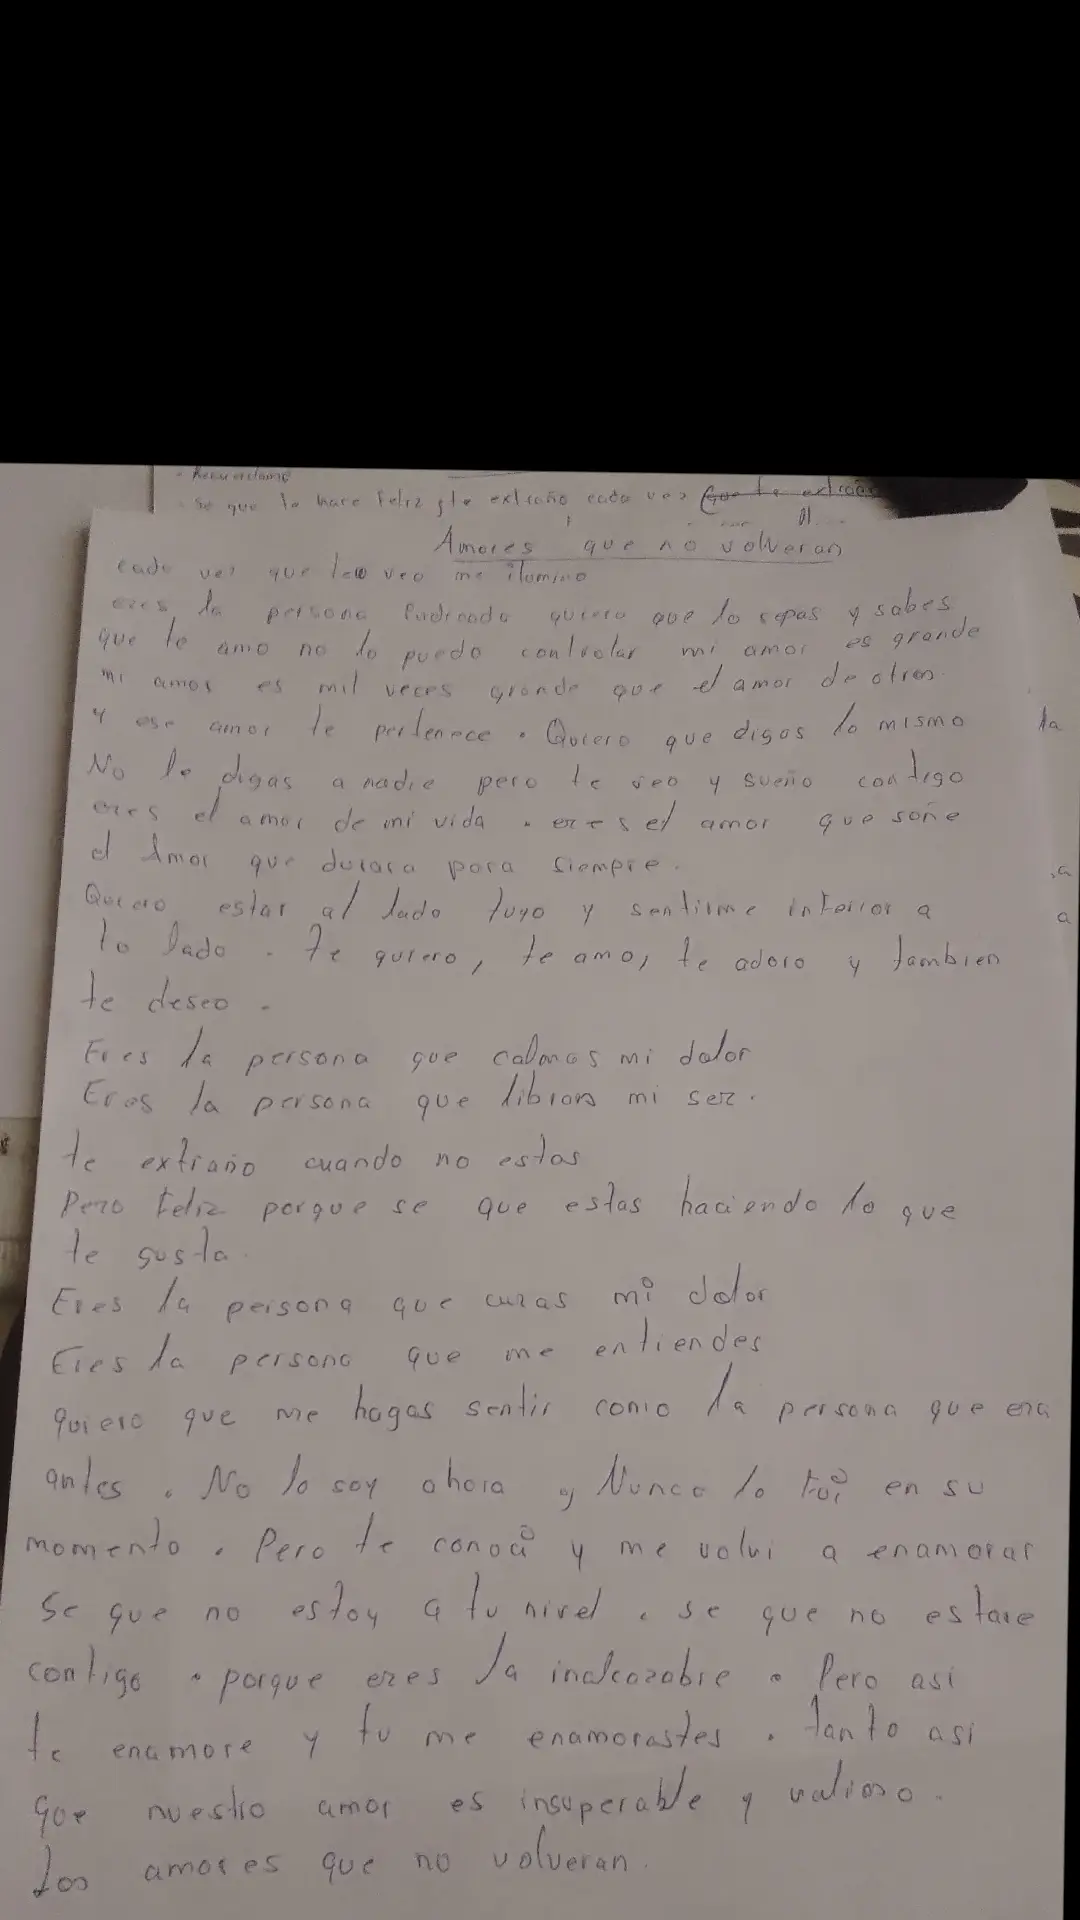 - Recuerdame
- se que lo hace feliz y te extraño cada vez que te extraño
Amores que no volveran
cada vez que leo veo me ilumino
eres la persona quiero que lo sepas y sabes
que te amo no lo puedo controlar mi amor es grande
mi amor es mil veces grande que el amor de otros
y ese amor te pertenece . Quiero que digas lo mismo
la
No le digas a nadie pero te veo y sueño contigo
eres el amor de mi vida . eres el amor que soñe
el Amor que durara para siempre.
Quiero estar al lado tuyo y sentirme inferior a
a
tu lado . te quiero, te amo, te adoro y tambien
te deseo .
Eres la persona que calmas mi dolor
Eres la persona que libras mi ser.
te extraño cuando no estas
Pero feliz porque se que estas haciendo lo que
te gusta.
Eres la persona que curas mi dolor
Eres la persona que me entiendes
quiero que me hagas sentir como la persona que era
antes . No lo soy ahora y Nunca lo fui en su
momento . Pero te conoci y me volvi a enamorar
Se que no estoy a tu nivel . se que no estare
contigo . porque eres la inalcazabre . Pero asi
te enamore y tu me enamorastes . tanto asi
que nuestro amor es insuperable y valioso.
Los amores que no volveran.